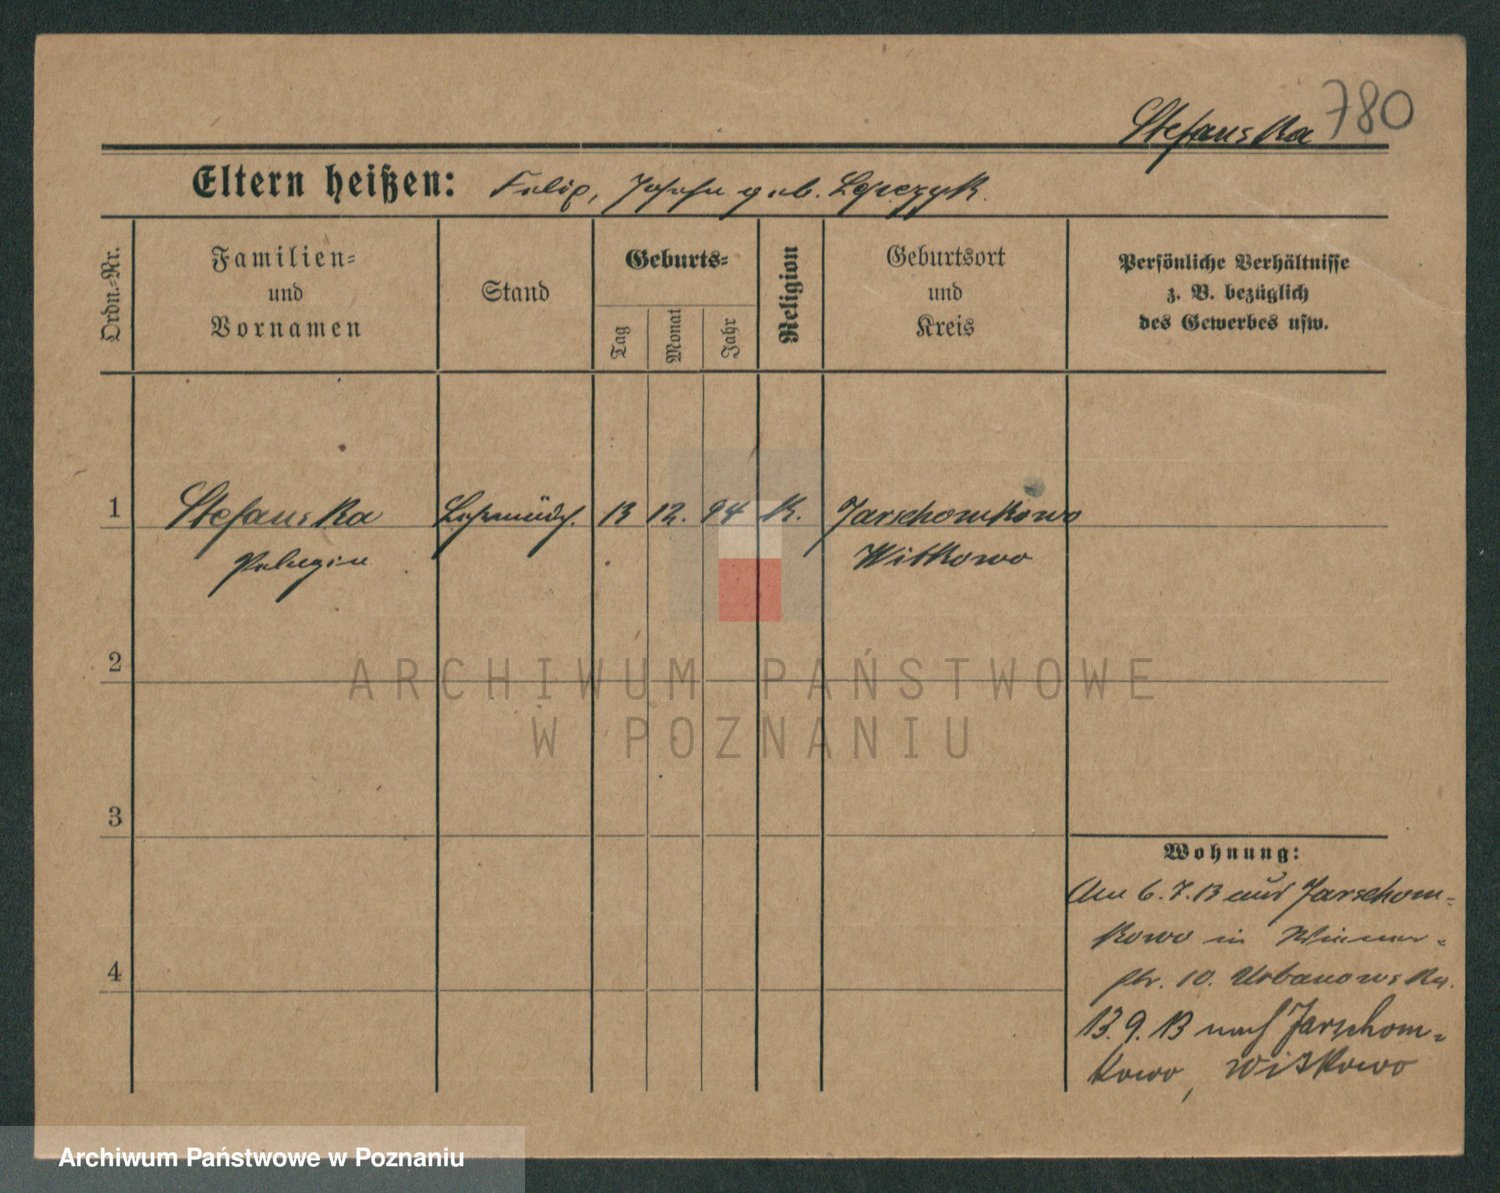 Stefanska 780
Eltern heißen: Filip, Josefa geb. Leszczyk.
Ordn.-Nr.
Familien=
und
Vornamen
Stand
Geburts=
Tag
Monat
Jahr
Religion
Geburtsort
und
Kreis
Persönliche Verhältnisse
z. B. bezüglich
des Gewerbes usw.
1 Stefanska 13 12. 94 K. Jarschomkowo
Pelagia Witkowo
2
ARCHIWUM PAŃSTWOWE
W POZNANIU
3
Wohnung:
Am 6.7.13 aus Jarschom=
kowo in
str. 10. Urbanowska.
4
13.9.13 nach Jarschom=
kowo, Witkowo
Archiwum Państwowe w Poznaniu